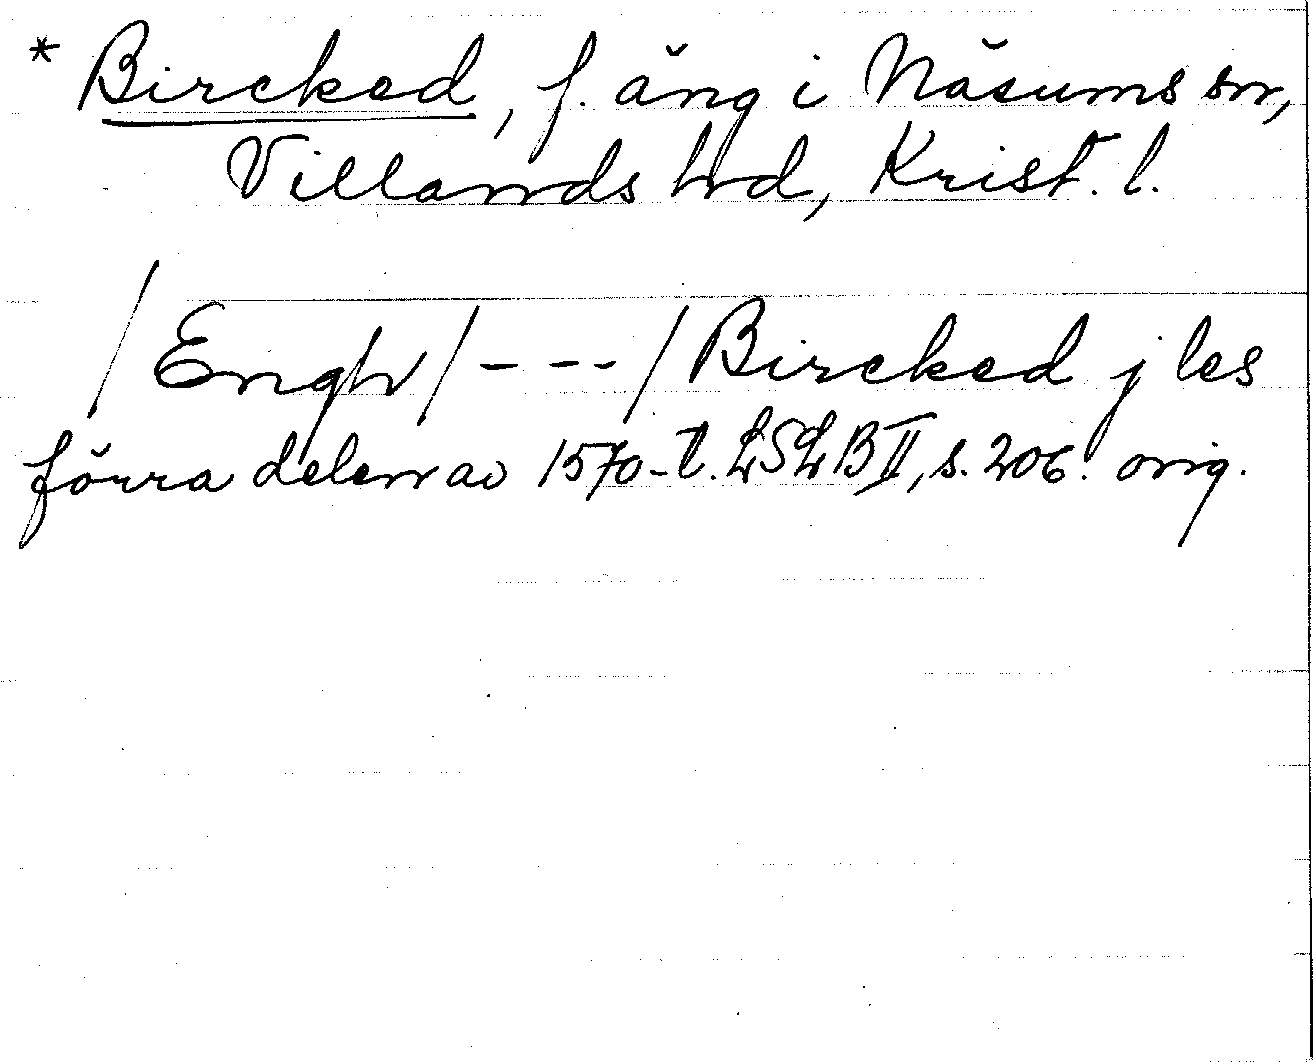 * Bircked, f. äng i Näsums sn,
Villands hd, Krist. l.
/Engh/---/Bircked j les
förra delen av 1570-t. LSLB II, s. 206. orig.